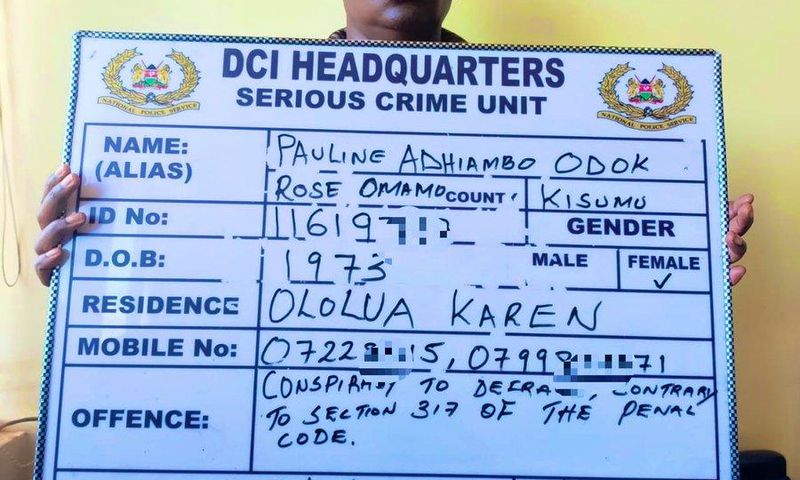 DCI HEADQUARTERS
SERIOUS CRIME UNIT
NATIONAL POLICE SERVICE
NATIONAL POLICE SERVICE
NAME: PAULINE ADHIAMBO ODOK
(ALIAS) ROSE OMAMO COUNT KISUMU
ID No: 11619 GENDER
D.O.B: 1973 MALE FEMALE ✓
RESIDENCE OLOLUA KAREN
MOBILE No: 0722 15, 0799 71
OFFENCE: CONSPIRACY TO DEFRA , CONTRARY
TO SECTION 317 OF THE PENAL
CODE.